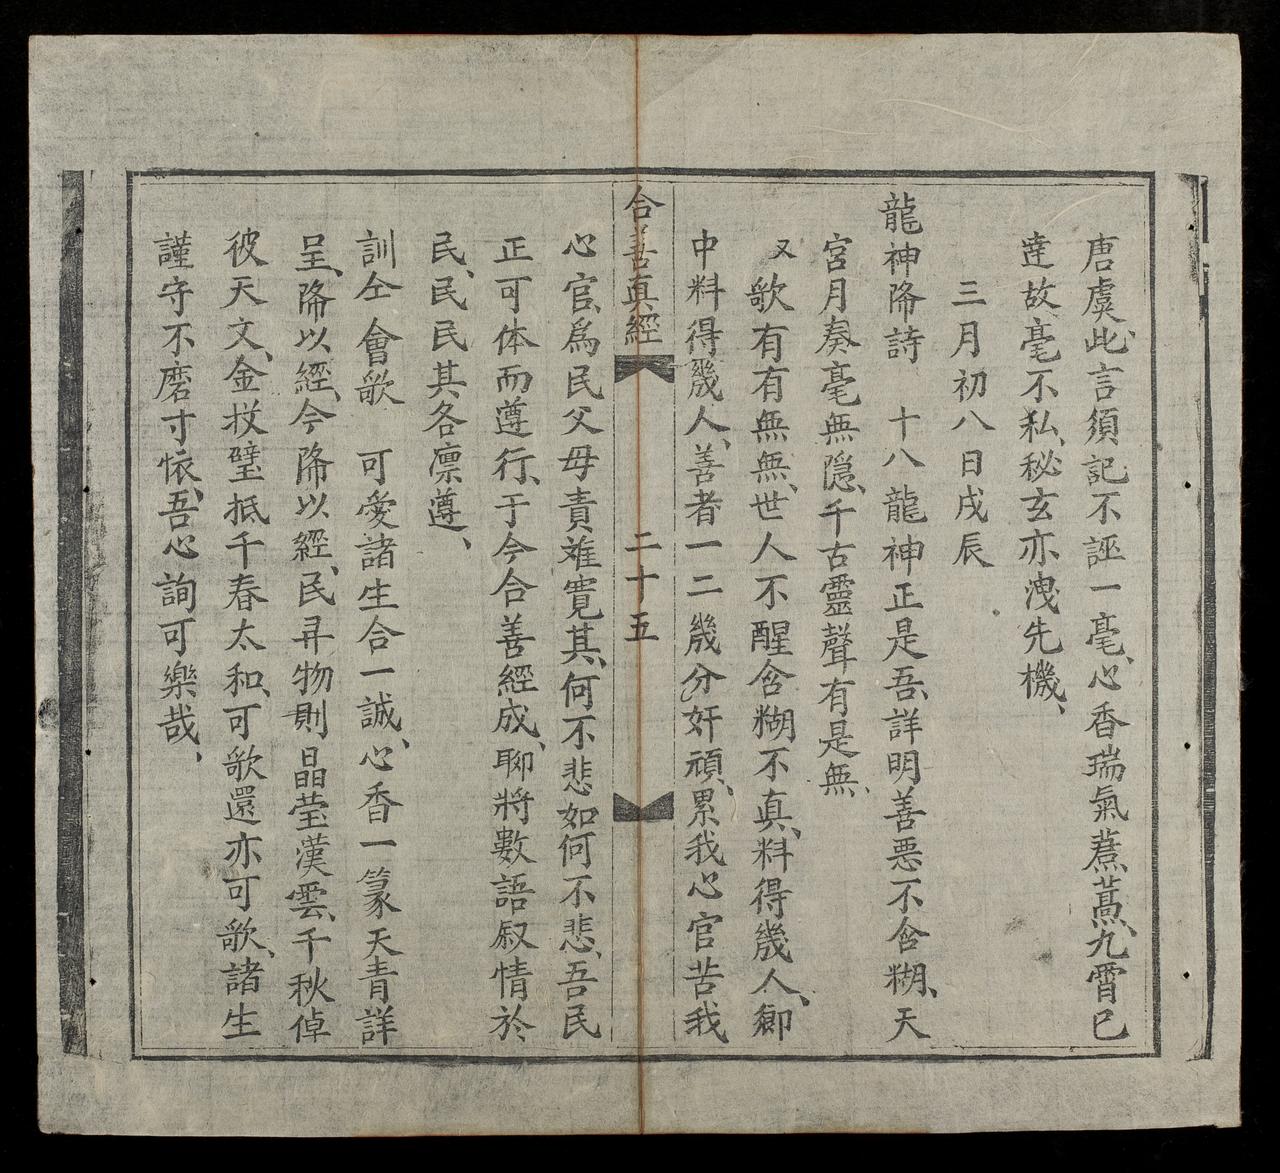 唐虞、此言須記不誣一毫、心香瑞氣薰蒿、九霄已
達故毫不私、秘玄亦洩先機、
三月初八日戌辰
龍神降詩　十八龍神正是吾、詳明善惡不含糊、天
宮月奏毫無隐、千古靈聲有是無、
又歌有有無無、世人不醒含糊不真、料得幾人、鄉
中料得幾人、善者一二幾分奸頑、累我心官苦我
合善真經　二十五
心官、為民父母責难寬其、何不悲如何不悲、吾民
正可体而遵行、于今合善經成、聊將數語叙情於
民、民民其各凛遵、
訓仝會歌　可愛諸生合一誠、心香一篆天青詳
呈、降以經、今降以經、民彛物則晶莹漢雲、千秋倬
彼天文、金投璧抵千春太和、可歌還亦可歌、諸生
謹守不磨寸懷、吾心詢可樂哉、